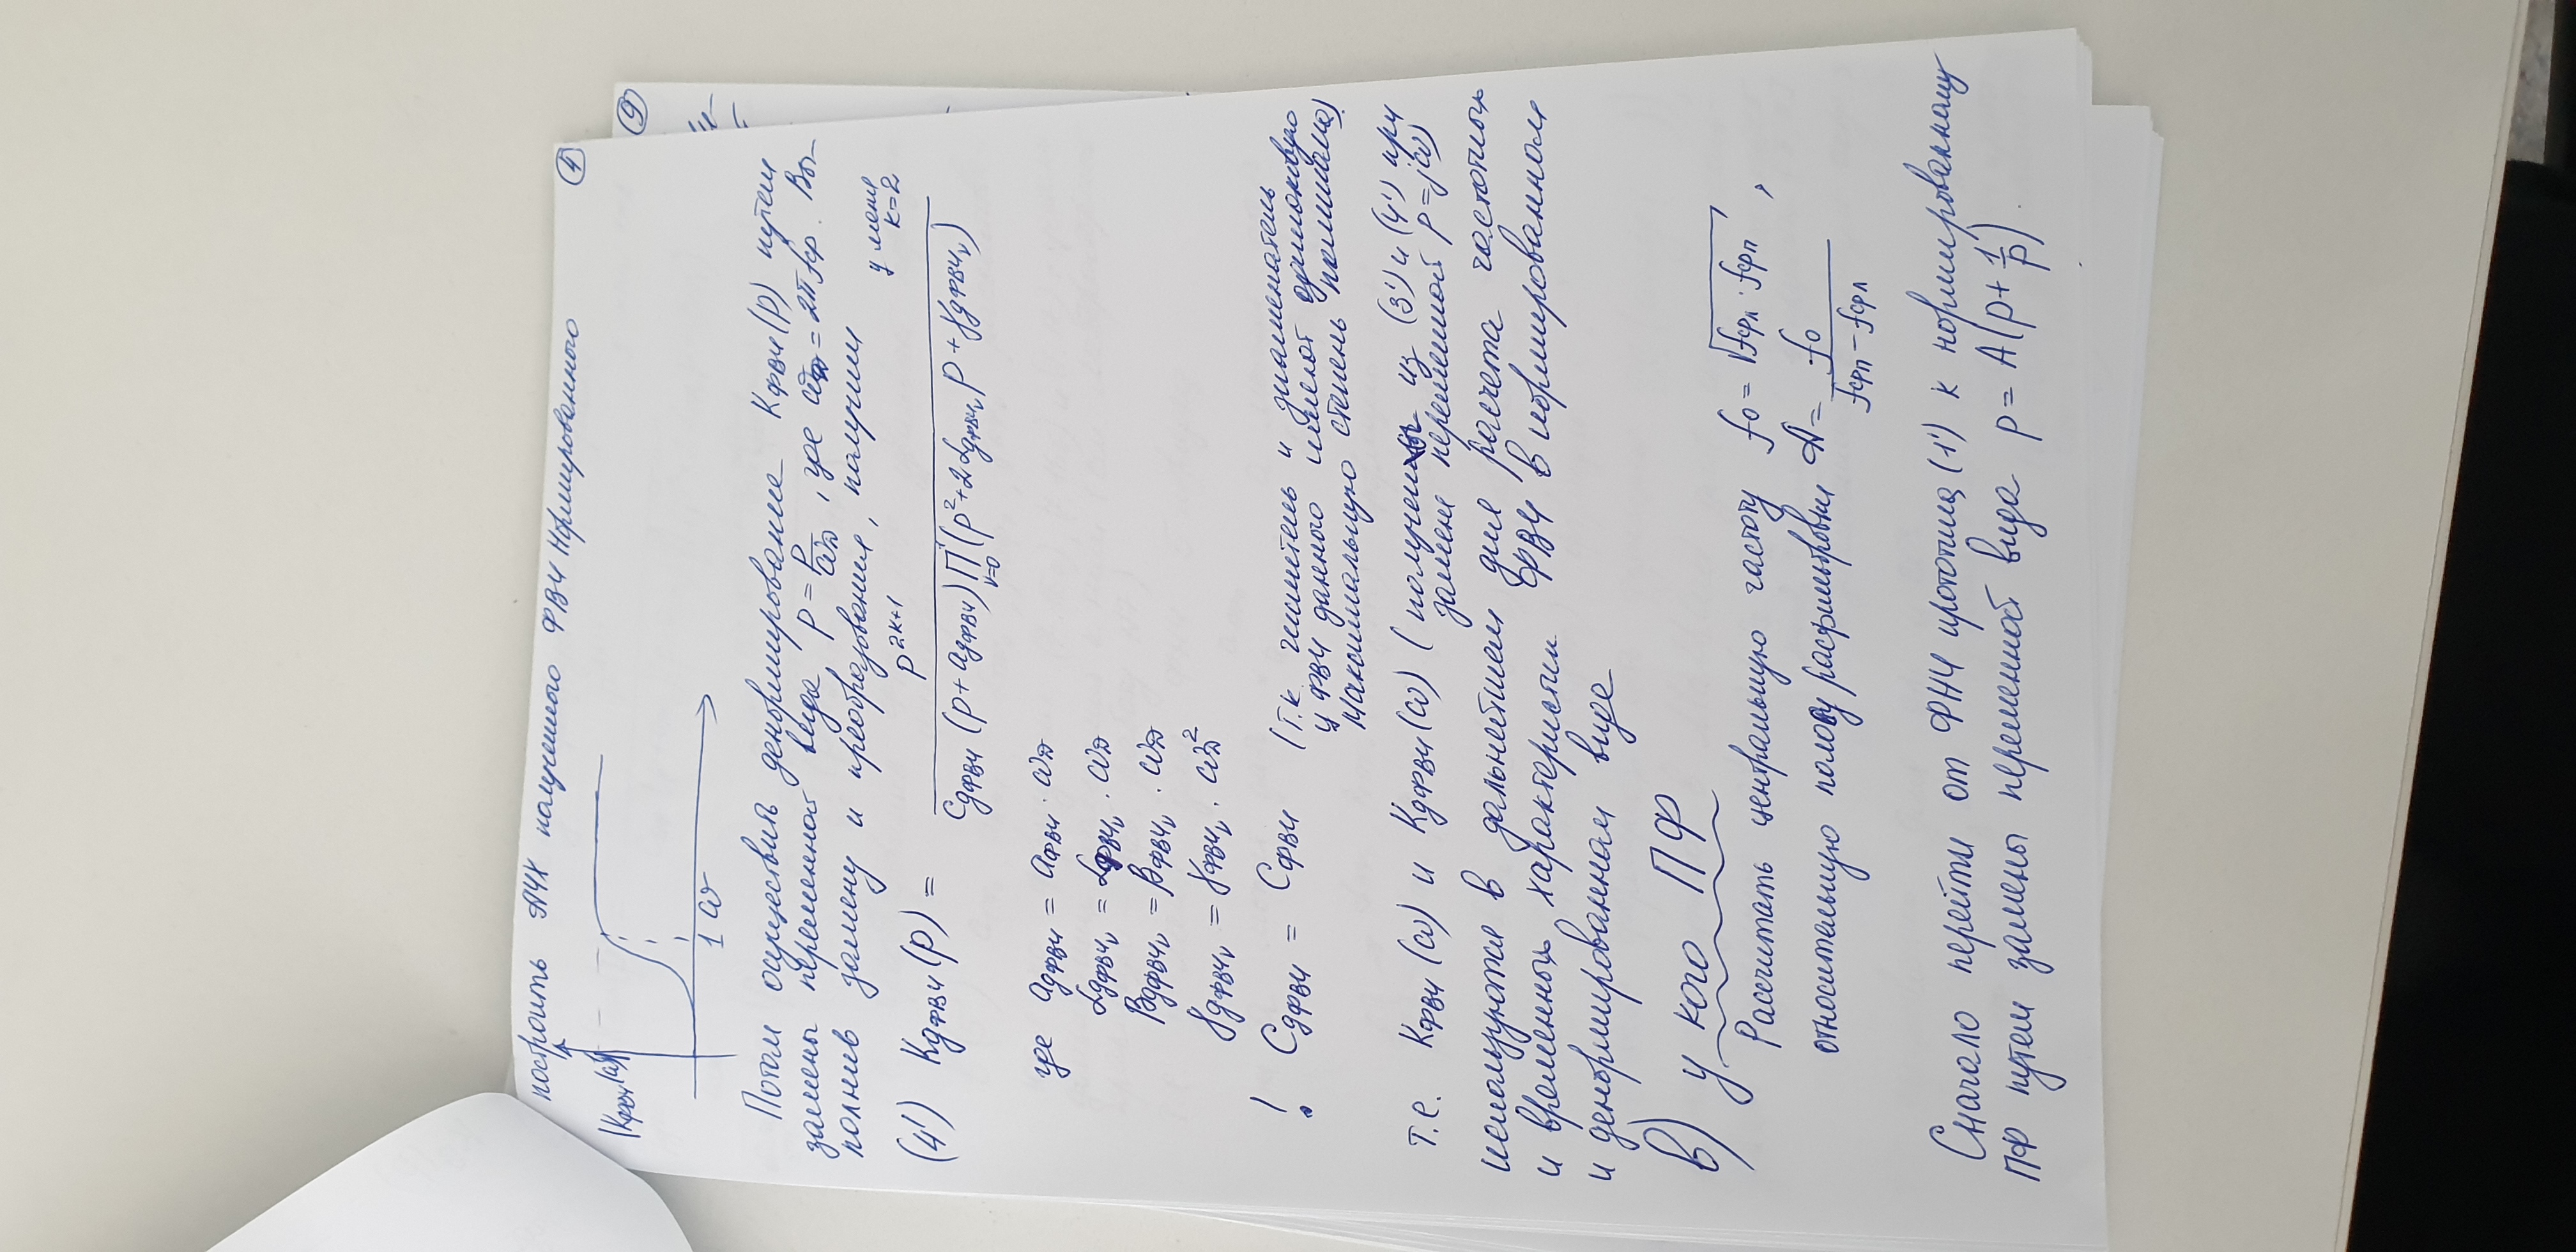 построить АЧХ полученного ФВЧ Нормированного
④
|Kфвч(ω)|
1 ω
⑨
Потом осуществить денормирование Kфвч(p) путем
замены переменной вида p = p/ωд, где ωд = 2π fср. Вы-
полнив замену и преобразования, получим
у меня
k=2
(4') Kдфвч(p) = p^(2k+1) / (Cдфвч (p + aдфвч) ∏_(ν=0)^1 (p² + 2αдфвчν p + γдфвчν))
где aдфвч = aфвч · ωд
αдфвчν = αфвчν · ωд
βдфвчν = βфвчν · ωд
γдфвчν = γфвчν · ωд²
! Cдфвч = Cфвч (т.к. числитель и знаменатель
у ФВЧ данного имеют одинаковую
максимальную степень полинома).
т.е. Kфвч(ω) и Kдфвч(ω) (получены из (3') и (4') при
замене переменной p=jω)
используются в дальнейшем для расчета частотных
и временных характеристик ФВЧ в нормированном
и денормированном виде
в) у кого ПФ
Рассчитать центральную частоту f0 = √(fсрл · fсрп) ,
относительную полосу расфильтровки A = f0 / (fсрп − fсрл)
Сначало перейти от ФНЧ прототипа (1') к нормированному
ПФ путем замены переменной вида p = A(p + 1/p).